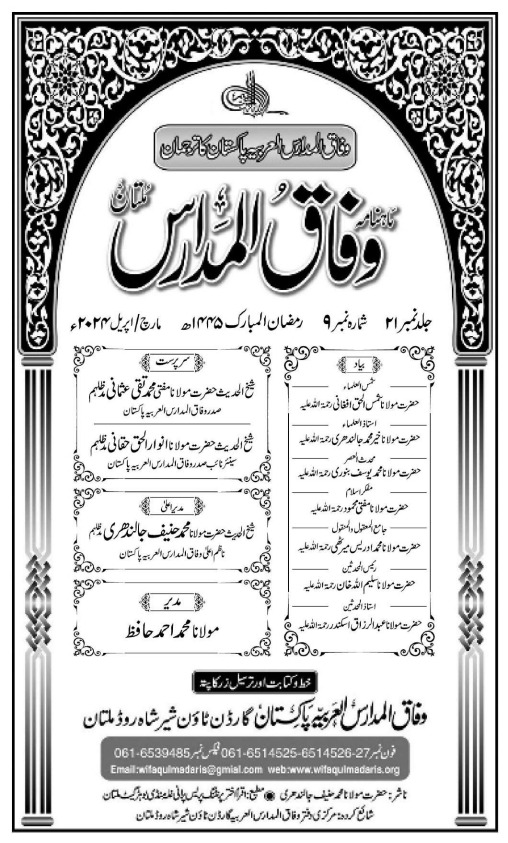 وفاق المدارس العربیہ پاکستان کا ترجمان
ماہنامہ وفاق المدارس ملتان
جلد نمبر ۲۱ شمارہ نمبر ۹ رمضان المبارک ۱۴۴۵ھ مارچ/اپریل ۲۰۲۴ء
بیاد
شمس العلماء
حضرت مولانا شمس الحق افغانی رحمۃ اللہ علیہ
استاذ العلماء
حضرت مولانا خیر محمد جالندھری رحمۃ اللہ علیہ
محدث العصر
حضرت مولانا محمد یوسف بنوری رحمۃ اللہ علیہ
مفکر اسلام
حضرت مولانا مفتی محمود رحمۃ اللہ علیہ
جامع المعقول والمنقول
حضرت مولانا محمد ادریس میرٹھی رحمۃ اللہ علیہ
رئیس المحدثین
حضرت مولانا سلیم اللہ خان رحمۃ اللہ علیہ
استاذ المحدثین
حضرت مولانا عبدالرزاق اسکندر رحمۃ اللہ علیہ
سرپرست
شیخ الحدیث حضرت مولانا مفتی محمد تقی عثمانی مدظلہم
صدر وفاق المدارس العربیہ پاکستان
شیخ الحدیث حضرت مولانا انوار الحق حقانی مدظلہم
سینئر نائب صدر وفاق المدارس العربیہ پاکستان
مدیر اعلیٰ
شیخ الحدیث حضرت مولانا محمد حنیف جالندھری مدظلہم
ناظم اعلیٰ وفاق المدارس العربیہ پاکستان
مدیر
مولانا محمد احمد حافظ
خط و کتابت اور ترسیل زر کا پتہ
وفاق المدارس العربیہ پاکستان گارڈن ٹاؤن شیر شاہ روڈ ملتان
فون نمبر 27-6514526-6514525-061 فیکس نمبر 6539485-061
Email:wifaqulmadaris@gmial.com web:www.wifaqulmadaris.org
ناشر: حضرت مولانا محمد حنیف جالندھری مطبع: اقرأ اختر پرنٹنگ پریس پرانی غلہ منڈی بوہڑ گیٹ ملتان
شائع کردہ: مرکزی دفتر وفاق المدارس العربیہ گارڈن ٹاؤن شیر شاہ روڈ ملتان